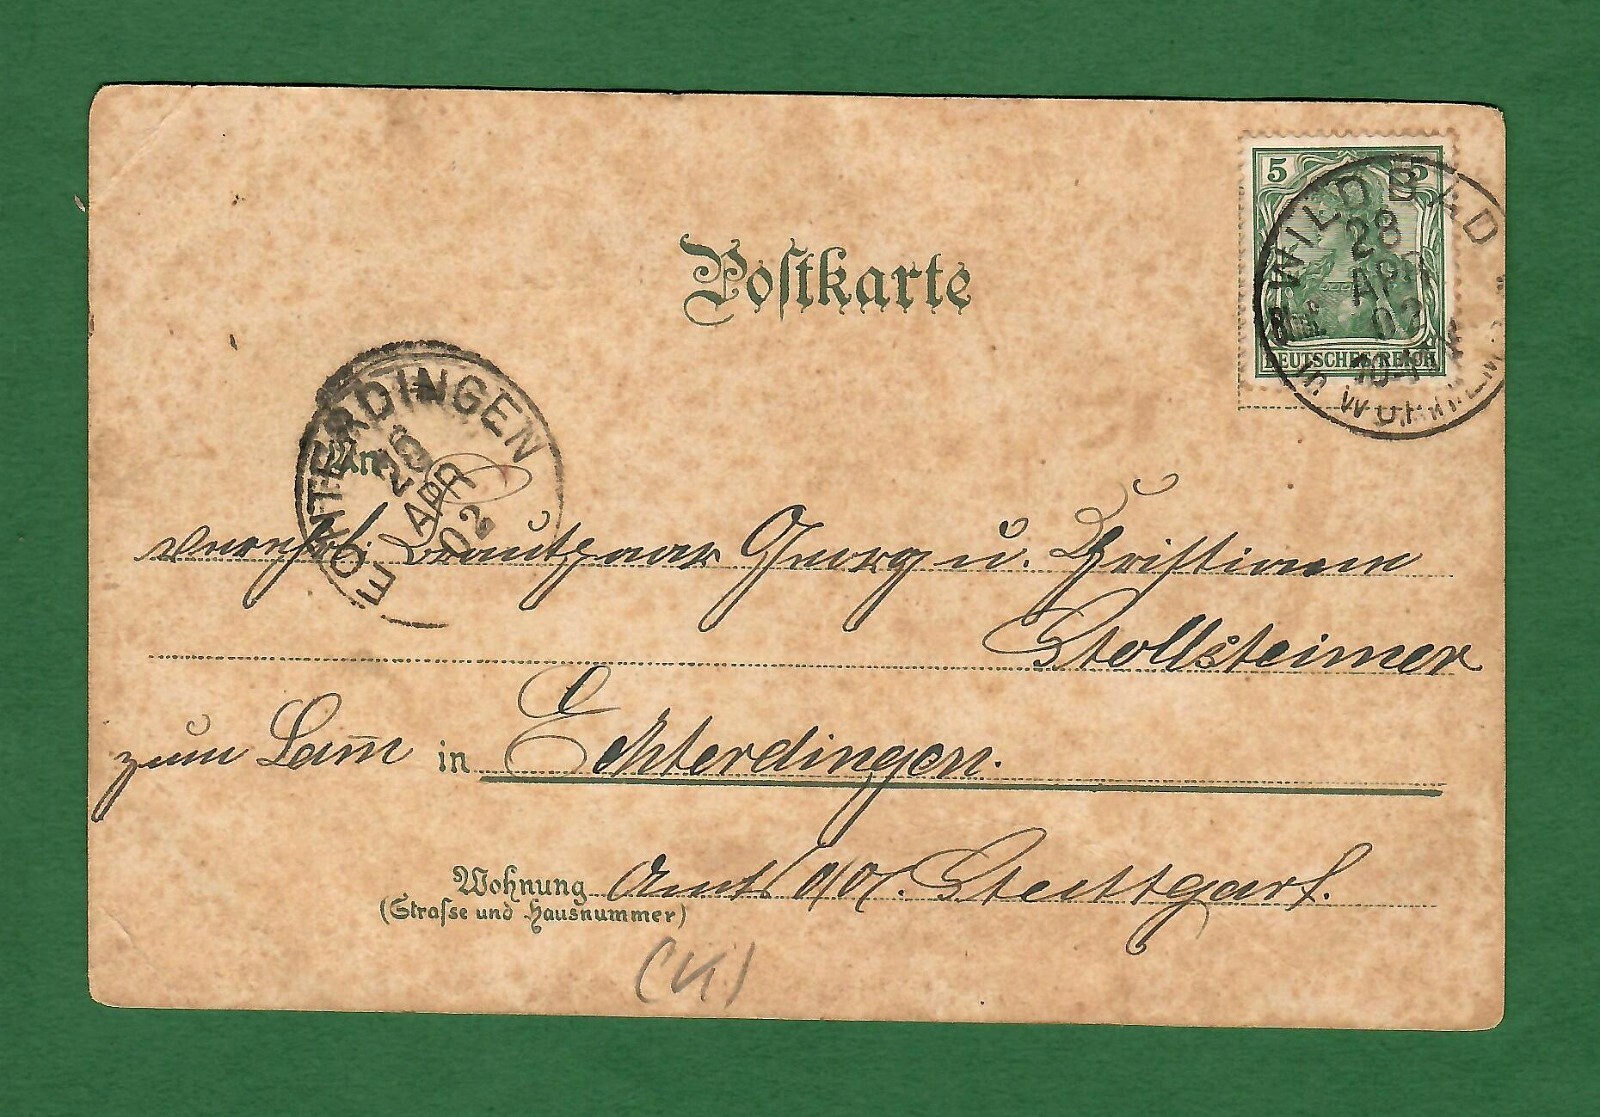 Postkarte
5 5
DEUTSCHES REICH
WILDBAD
28
APR
02
10-11
ECHTERDINGEN
APR
02
An
verehrl. Brautpaar Georg u. Christiane
Stollsteimer
zum Lam̅ in Echterdingen.
Wohnung Amt Stuttgart.
(Strasse und Hausnummer)